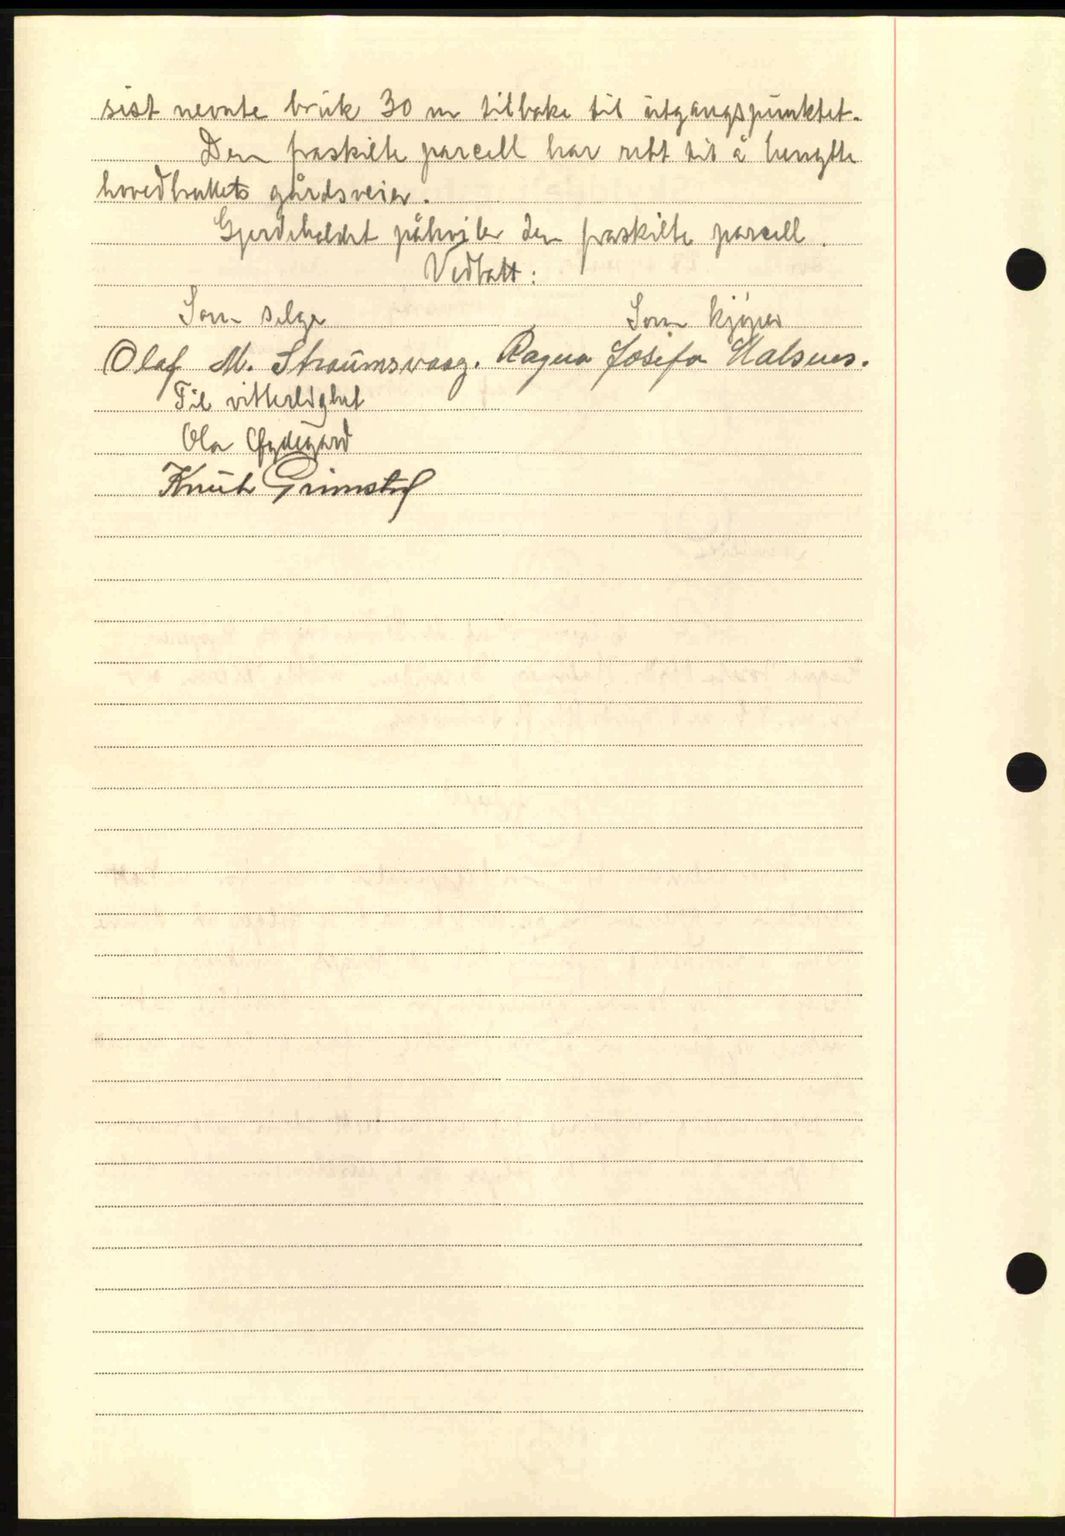 sist nevnte bruk 30 m tilbake til utgangspunktet.
Den fraskilte parcell har rett til å benytte
hovedbrukets gårdsveier.
Gjerdeholdet påhviler den fraskilte parcell.
Vedtatt:
Som selger
Som kjøper
Olaf M. Straumsvaag. Ragna Josefa Halsnes.
Til vitterlighet
Ola
Knut Grimstad